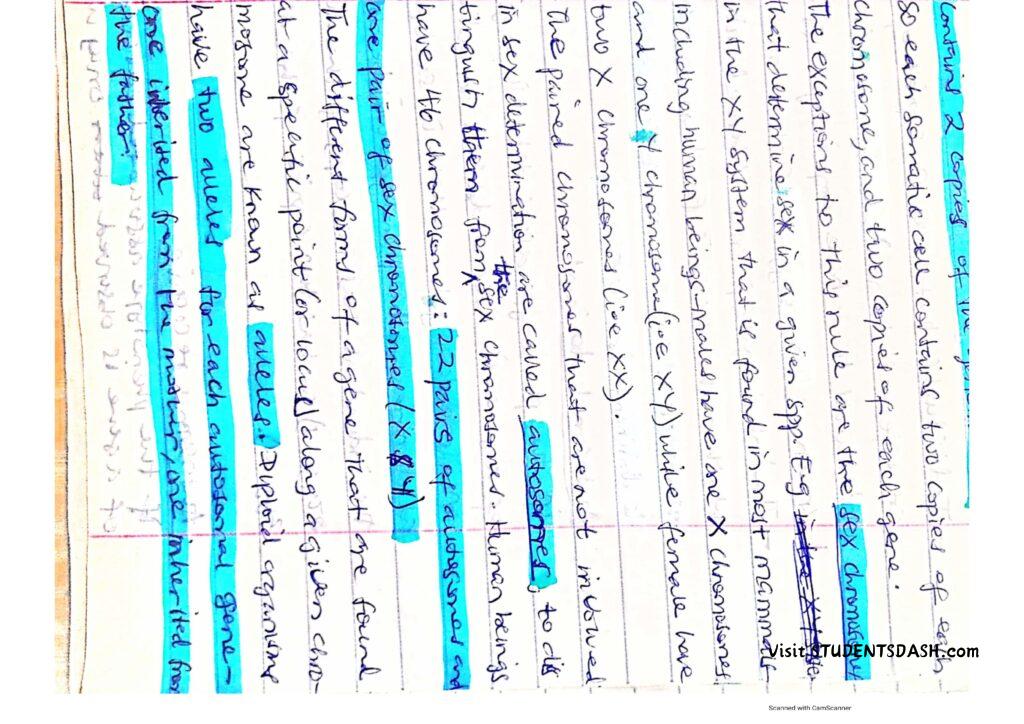 contains 2 copies of the
so each somatic cell contains two copies of each
chromosome, and two copies of each gene.
The exceptions to this rule are the sex chromosomes
that determine sex in a given spp. E.g in the XY system
in the XY system that is found in most mammals-
including human beings-males have one X chromosomes
and one Y chromosome (i.e XY) while female have
two X chromosomes (i.e XX).
The paired chromosomes that are not involved
in sex determination are called autosomes, to dis
tinguish them from the sex chromosomes. Human beings
have 46 chromosomes: 22 pairs of autosomes and
one pair of sex chromosomes (X & Y)
The different forms of a gene that are found
at a specific point (or locus) along a given chro-
mosome are known as alleles. Diploid organisms
have two alleles for each autosomal gene-
one inherited from the mother, one inherited from
the father.
Visit STUDENTSDASH.com
Scanned with CamScanner